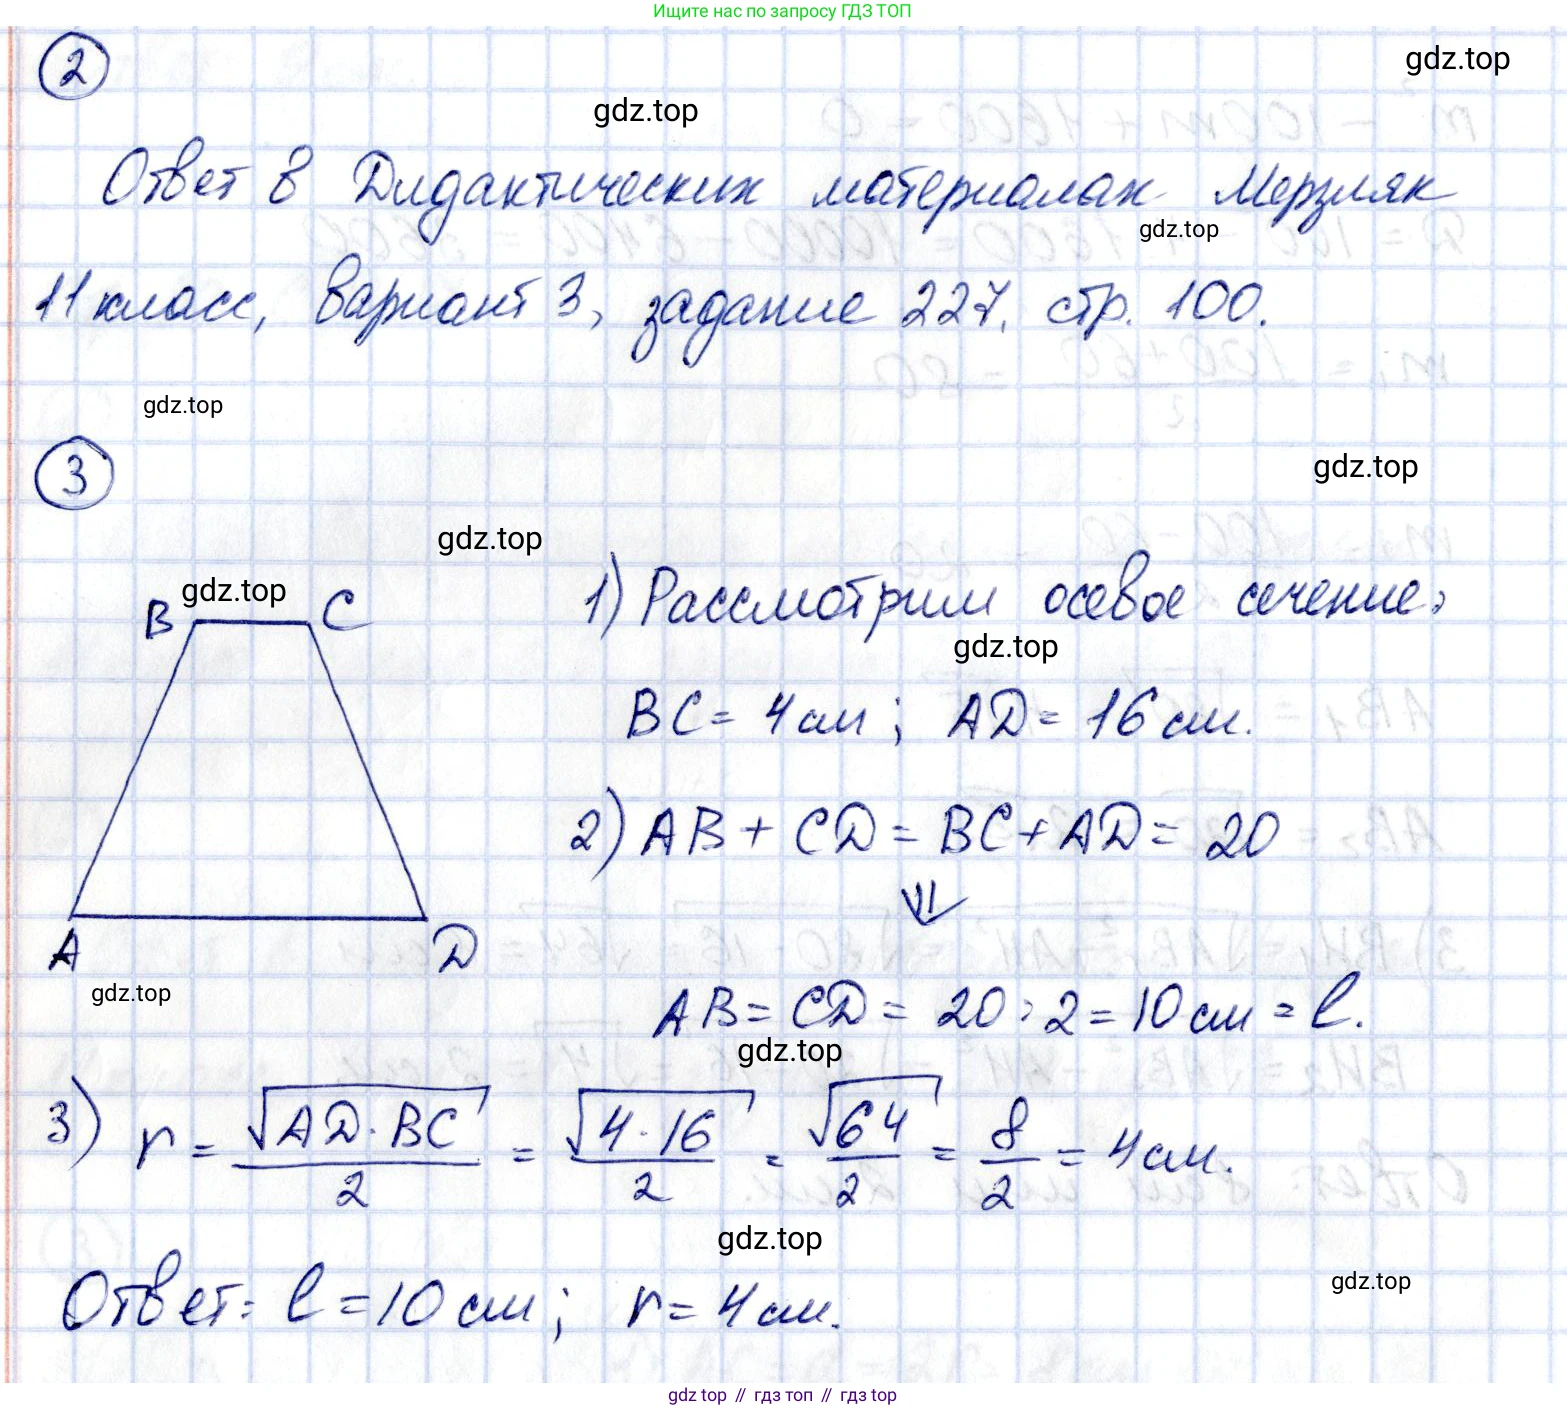 Ищите нас по запросу ГДЗ ТОП
2
gdz.top
gdz.top
Ответ в Дидактических материалах Мерзляк
gdz.top
11 класс, вариант 3, задание 227, стр. 100.
gdz.top
3
gdz.top
gdz.top
gdz.top
B C
1) Рассмотрим осевое сечение,
gdz.top
BC = 4 см; AD = 16 см.
2) AB + CD = BC + AD = 20
⇓
A D
gdz.top
AB = CD = 20 : 2 = 10 см = l.
gdz.top
3) r = √(AD · BC)/2 = √(4 · 16)/2 = √64/2 = 8/2 = 4 см.
gdz.top
gdz.top
Ответ: l = 10 см; r = 4 см.
gdz.top // гдз топ // гдз top